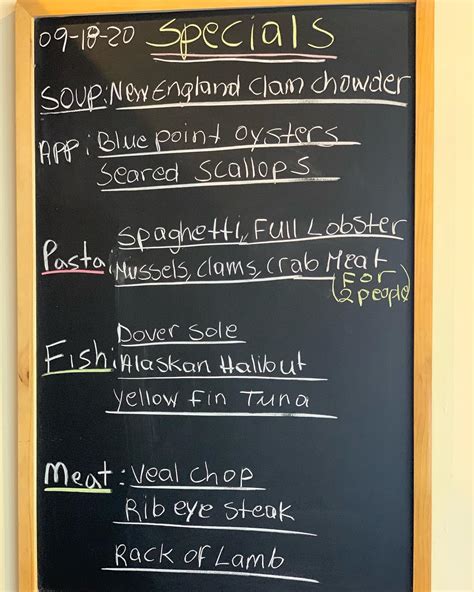 09-18-20 Specials
Soup: New England Clam Chowder
App: Blue point oysters
Seared Scallops
Spaghetti, Full Lobster
Pasta: Mussels, Clams, Crab Meat
(For 2 people)
Dover Sole
Fish: Alaskan Halibut
Yellow Fin Tuna
Meat: Veal Chop
Rib eye Steak
Rack of Lamb